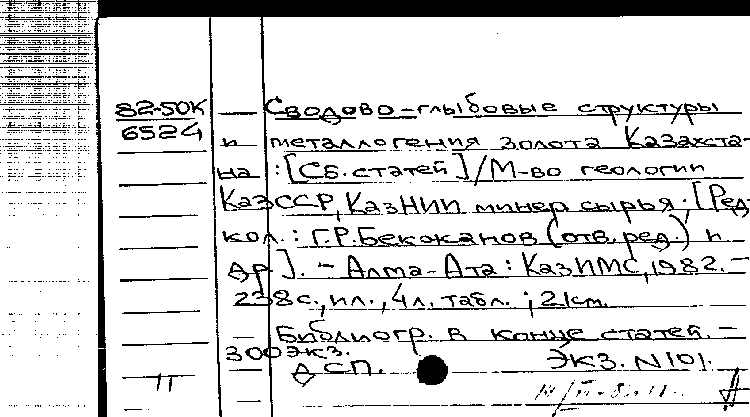 82-50К — Сводово-глыбовые структуры
6524 и металлогения золота Казахста-
на : [Сб. статей] / М-во геологии
КазССР, КазНИИ минер сырья. [Ред-
кол. : Г.Р. Бекжанов (отв. ред.) и
др.]. - Алма-Ата : КазИМС, 1982. -
238 с., ил., 4 л. табл. ; 21 см.
Библиогр. в конце статей. -
300 экз.
ДСП. Экз. N 101.